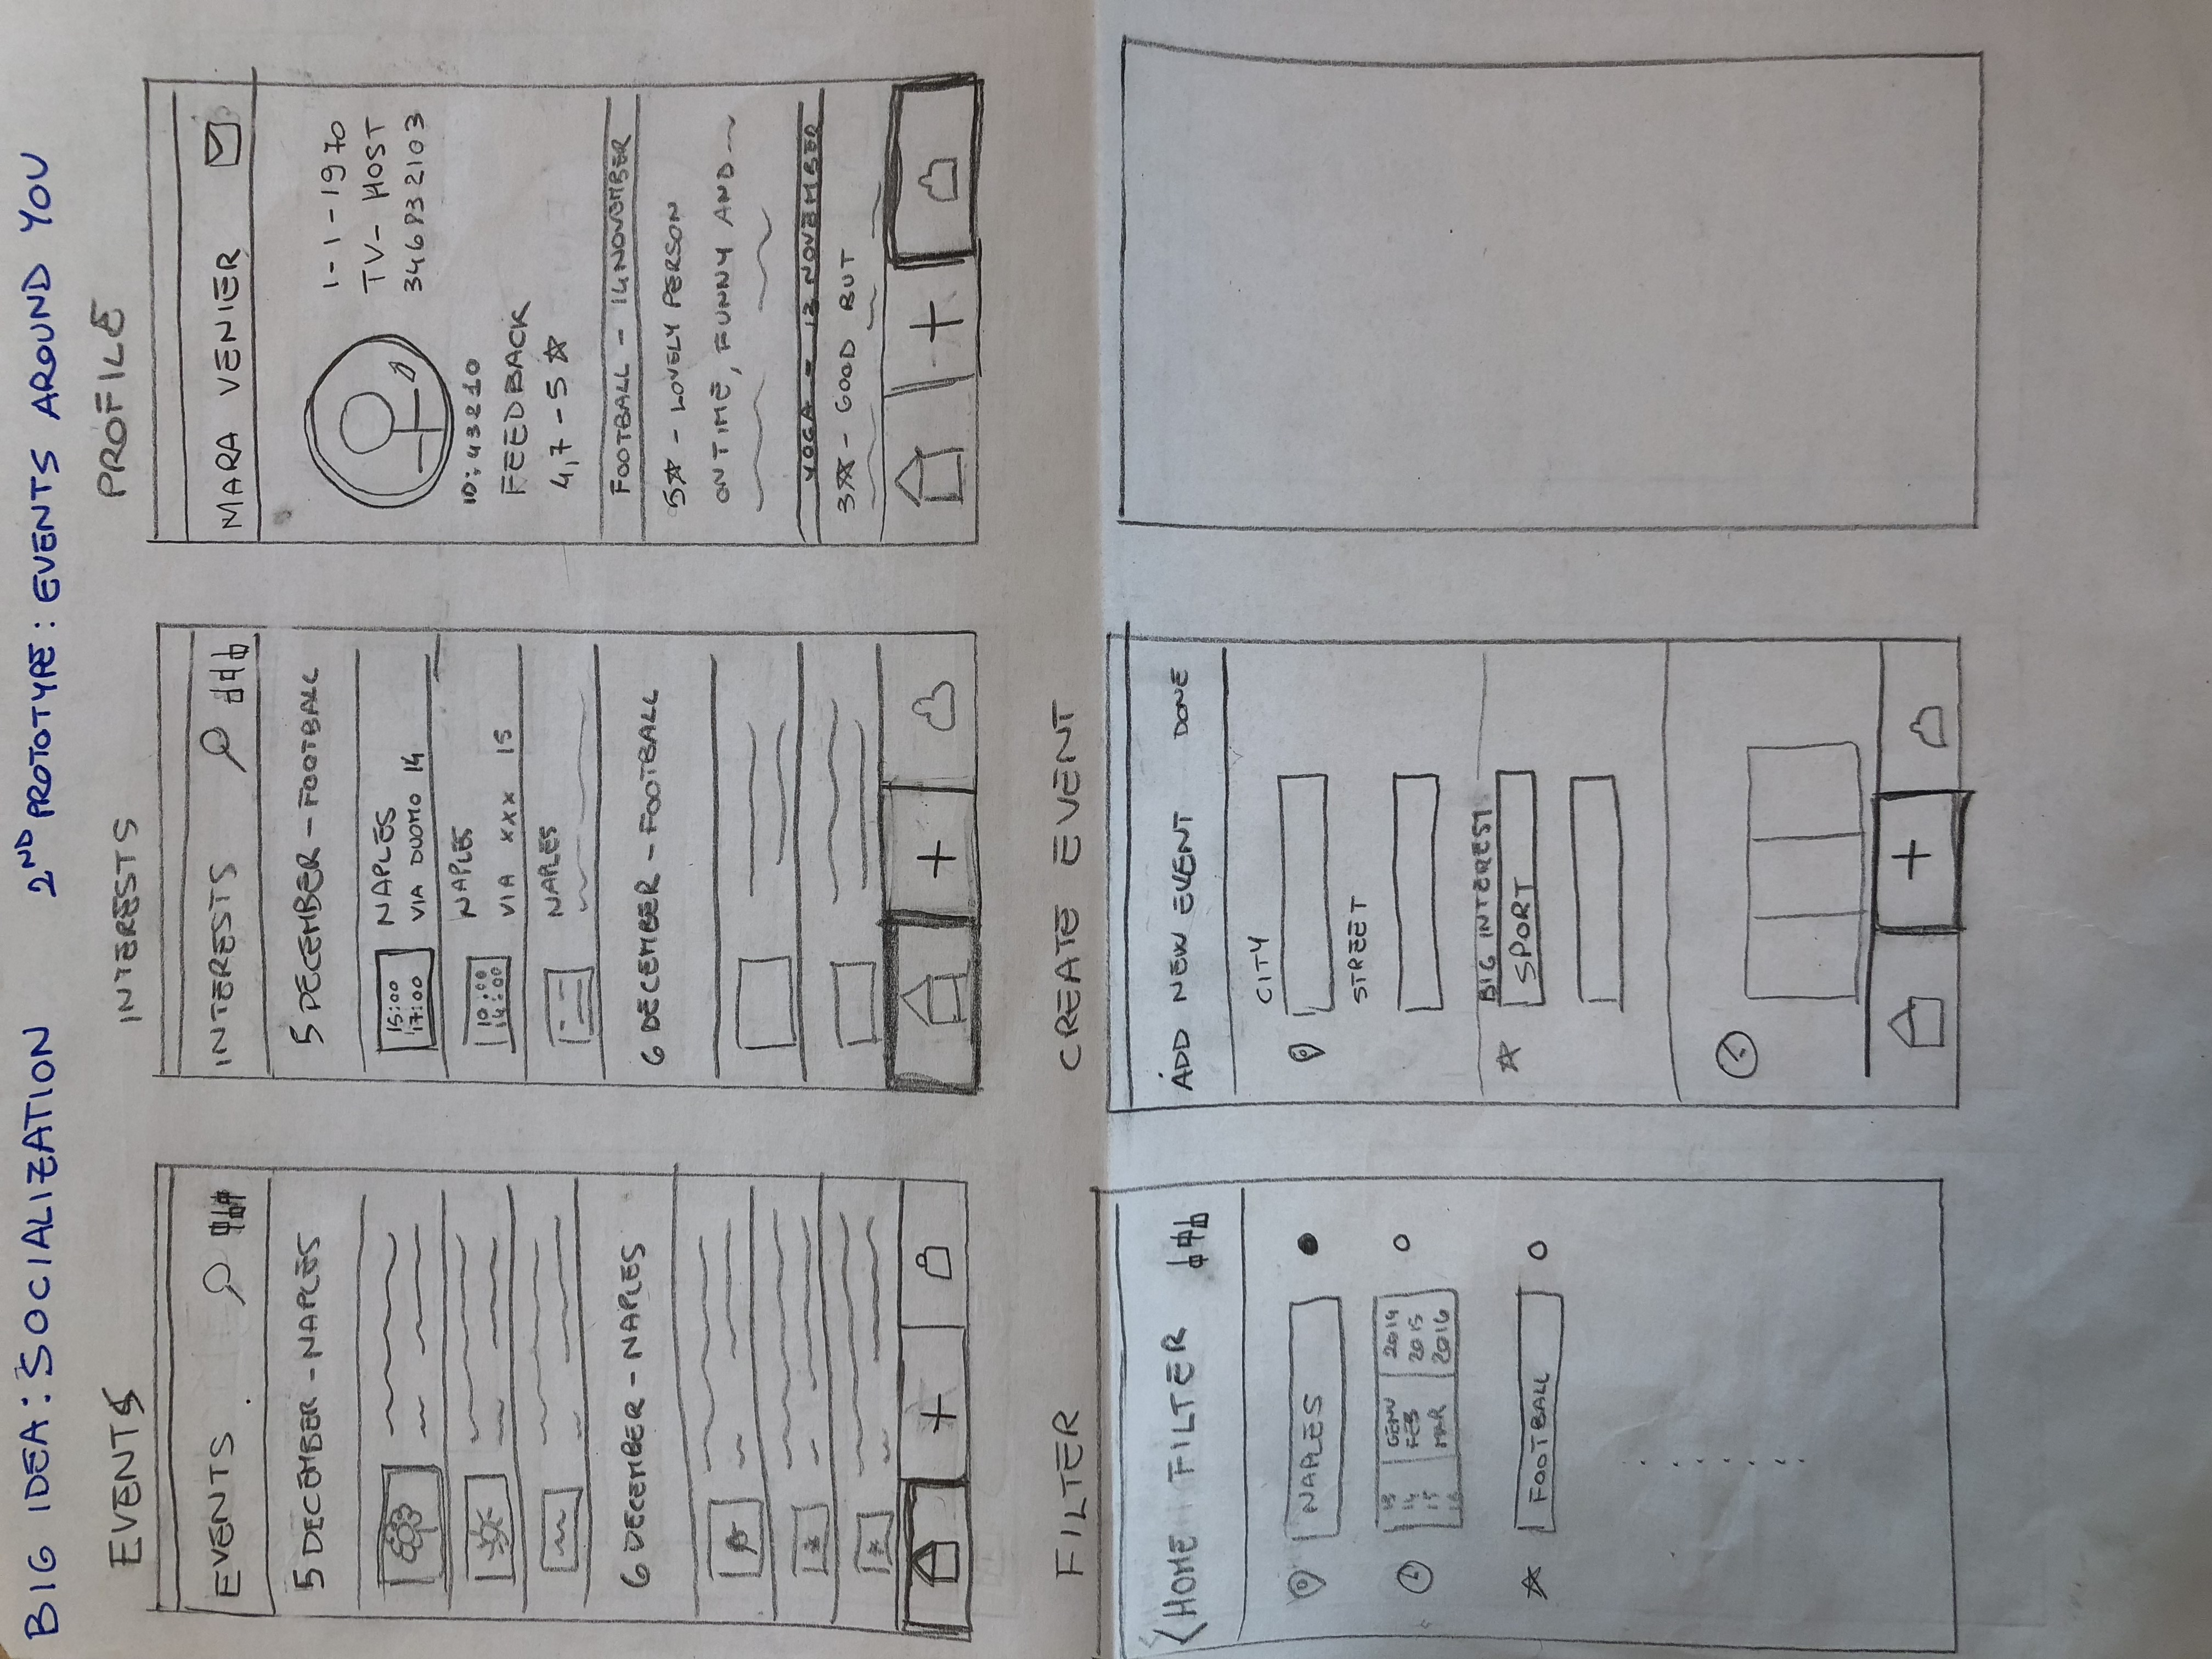 BIG IDEA: SOCIALIZATION
2ND PROTOTYPE: EVENTS AROUND YOU
EVENTS
EVENTS
5 DECEMBER - NAPLES
6 DECEMBER - NAPLES
INTERESTS
INTERESTS
5 DECEMBER - FOOTBALL
15:00
17:00
NAPLES
VIA DUOMO 14
10:00
14:00
NAPLES
VIA XXX 15
NAPLES
6 DECEMBER - FOOTBALL
PROFILE
MARA VENIER
1-1-1970
TV-HOST
346832103
ID: 43210
FEEDBACK
4,7 - 5 ☆
FOOTBALL - 14 NOVEMBER
5☆ - LOVELY PERSON
ON TIME, FUNNY AND
YOGA - 12 NOVEMBER
3☆ - GOOD BUT
FILTER
< HOME FILTER
NAPLES
13 GENN 2014
14 FEB 2015
15 MAR 2016
16
FOOTBALL
CREATE EVENT
ADD NEW EVENT DONE
CITY
STREET
BIG INTEREST
SPORT